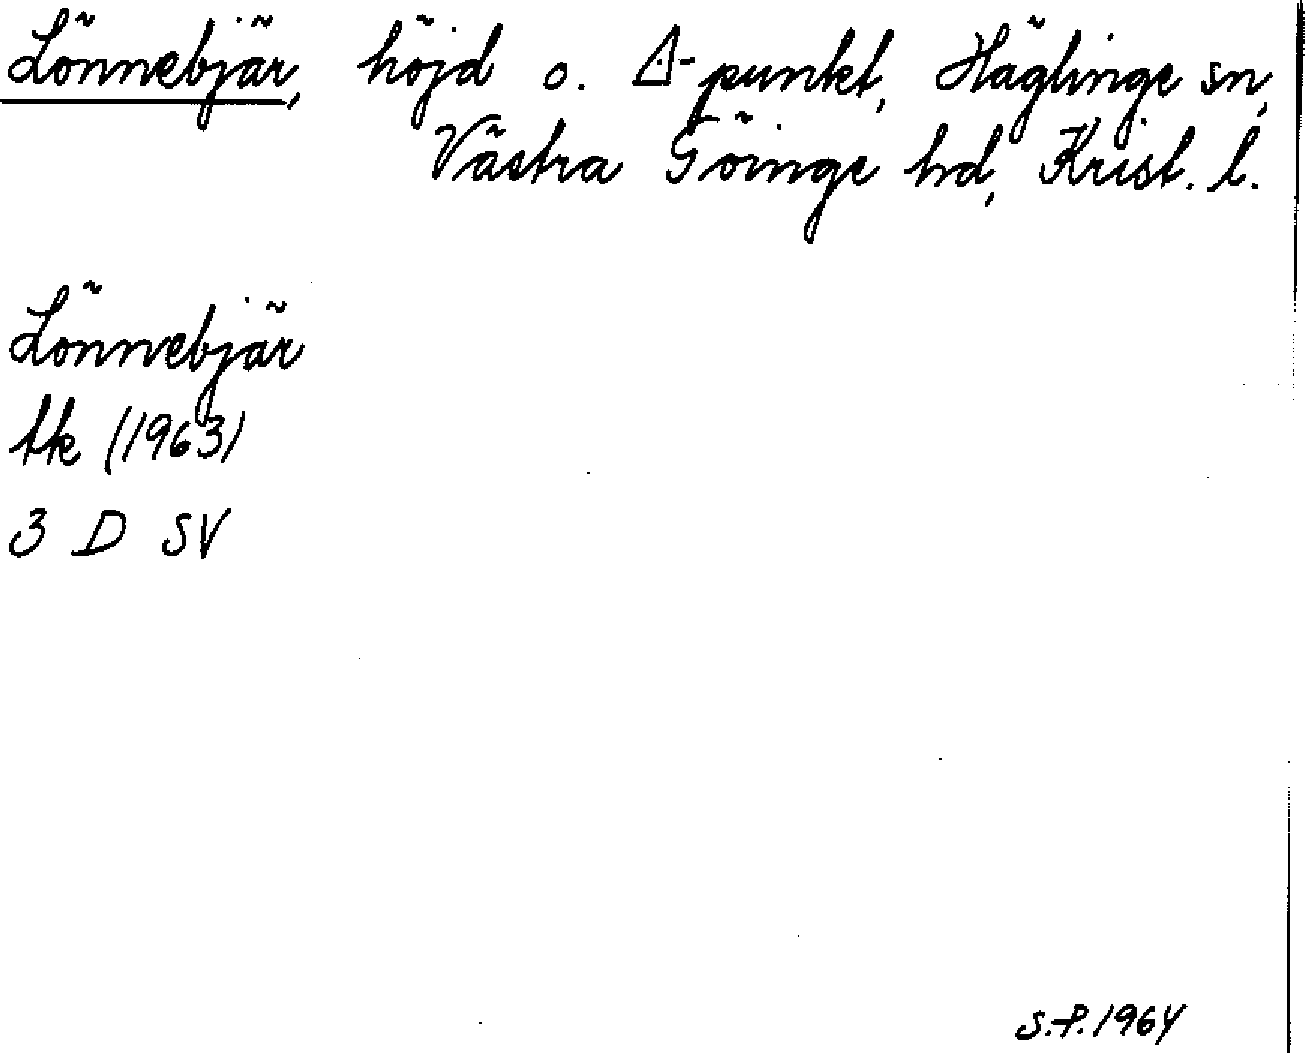 Lönnebjär, höjd o. Δ-punkt, Häglinge sn,
Västra Göinge hd, Krist. l.
Lönnebjär
tk (1963)
3 D SV
S.P. 1964